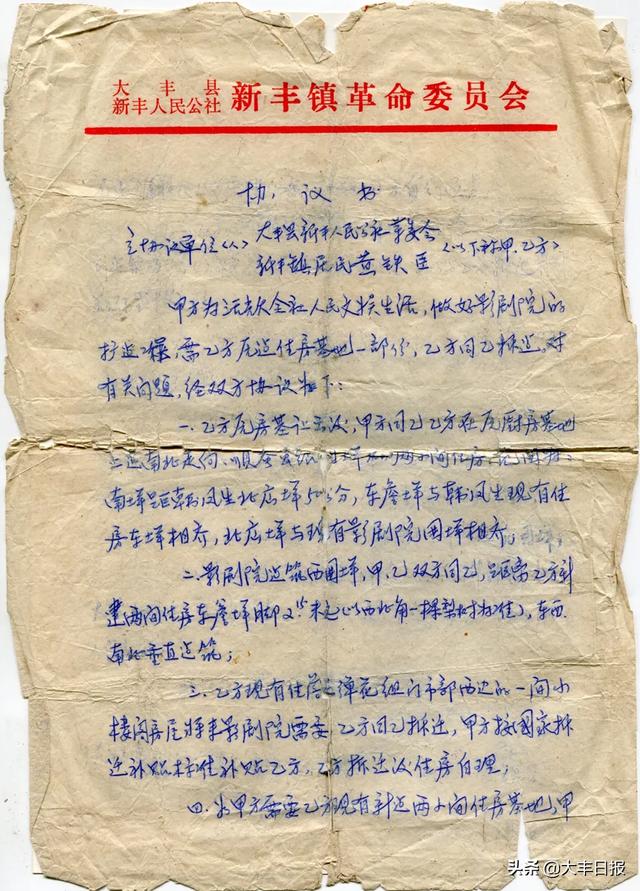 大丰县
新丰人民公社 新丰镇革命委员会
协议书
立协议单位(人) 大丰县新丰人民公社革委会
新丰镇居民黄铁臣 (以下称甲、乙方)
甲方为活跃全社人民文娱生活,做好影剧院的
扩建工程,需乙方屋边住房基地一部份,乙方同意拆迁,对
有关问题,经双方协议如下:
一、乙方房基让出后,甲方同意乙方在厨房基地
上建南北走向
南 距韩凤生北 5 分,东 与韩凤生现有住
房东 相齐,北 与现有影剧院围 相齐。
二、影剧院建筑西围 ,甲、乙双方同意,距需乙方新
建两间住房东 脚 (以西北角一棵梨树为准),东西
南北垂直建筑;
三、乙方现有住 弹花组门市部西边的一间小
楼阁房屋将来影剧院需要,乙方同意拆迁,甲方按国家拆
迁补贴标准补贴乙方,乙方拆迁后住房自理;
四、如甲方需要乙方现有新建两小间住房基地,甲
头条@大丰日报